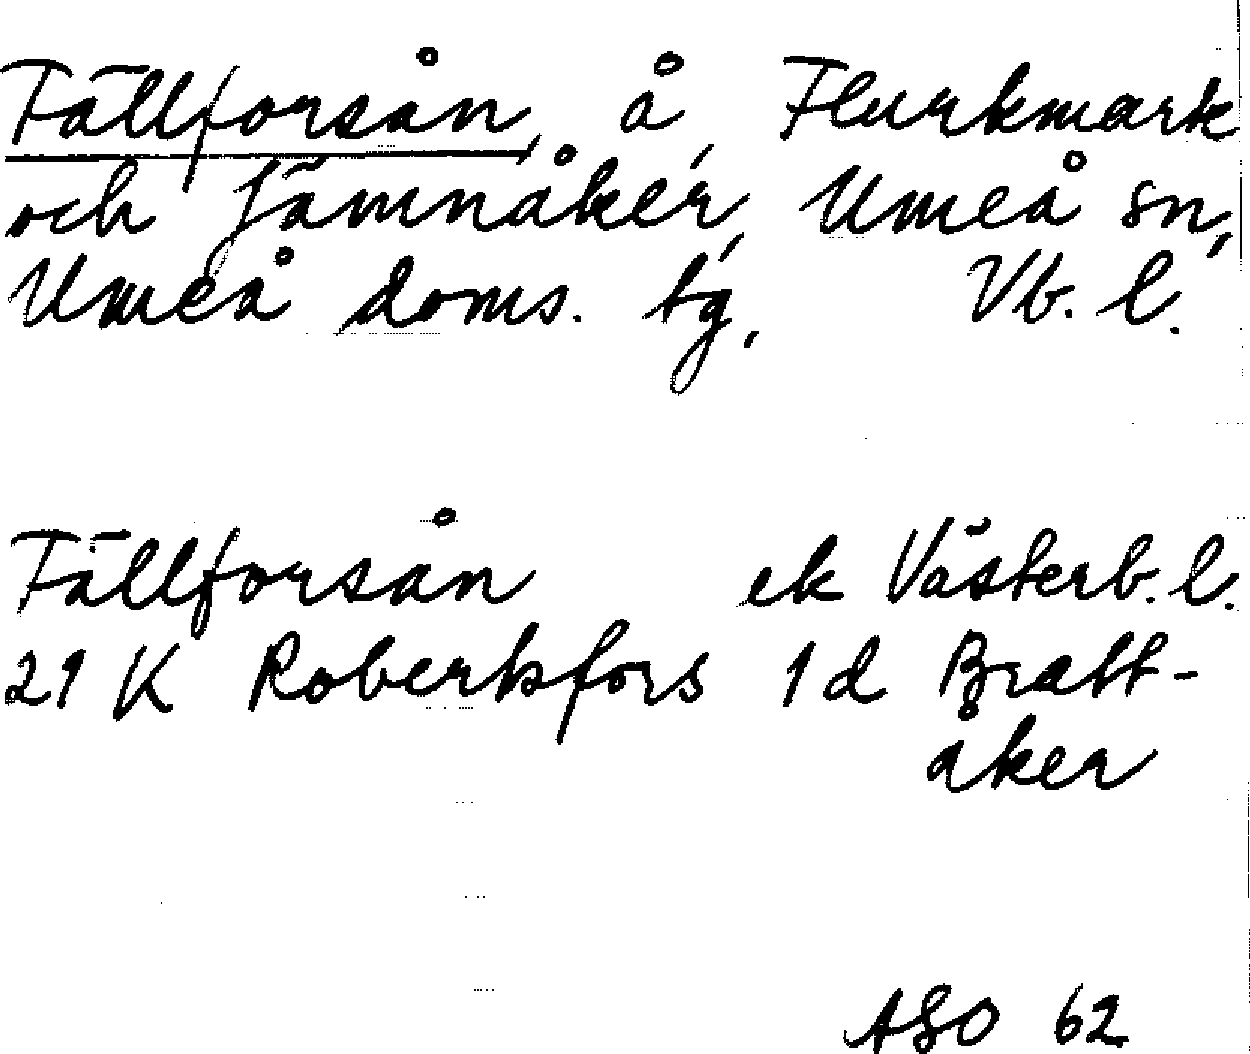 Fällforsån, å, Flurkmark
och Jämnåker, Umeå sn,
Umeå doms. tg, Vb. l.
Fällforsån ek Västerb. l.
21 K Robertsfors 1 d Bratt-
åker
ASO 62